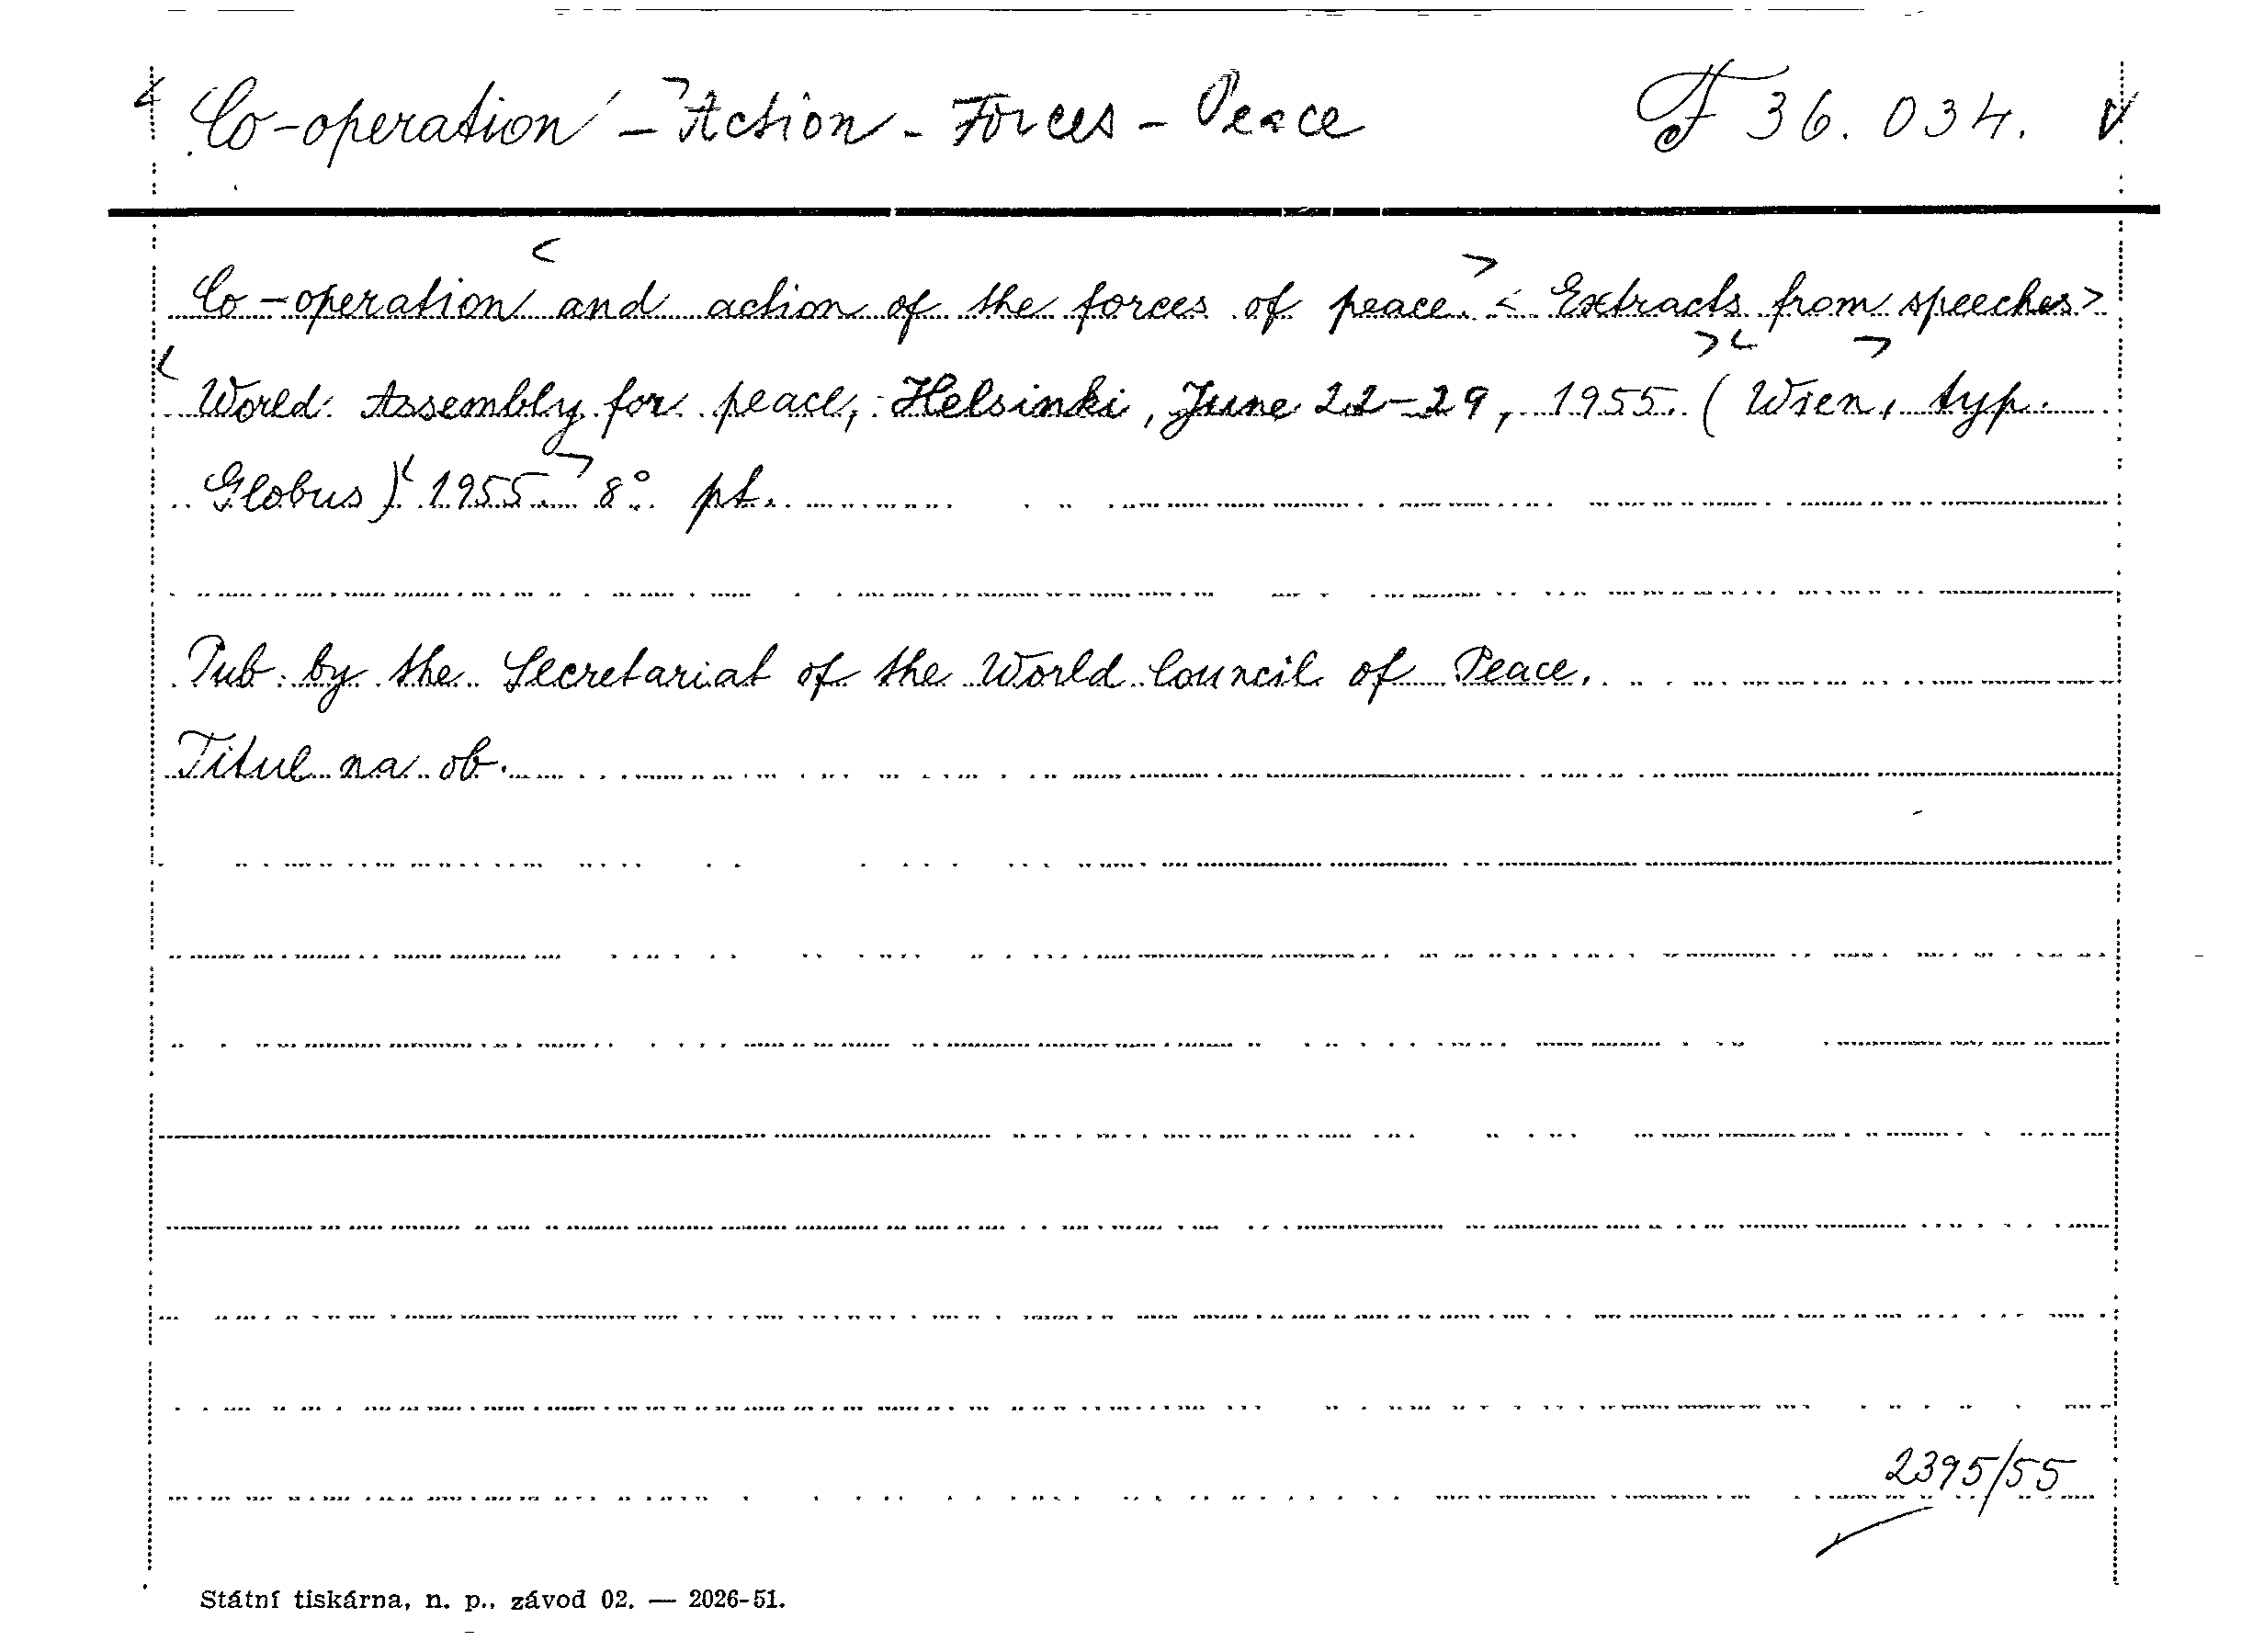 Co-operation - Action - Forces - Peace F 36.034.
Co-operation and action of the forces of peace. < Extracts from speeches >
World Assembly for peace, Helsinki, June 22-29, 1955. (Wien, typ.
Globus) 1955. 8°. pt.
Pub. by the Secretariat of the World Council of Peace.
Titul na ob.
2395/55
Státní tiskárna, n. p., závod 02. — 2026-51.